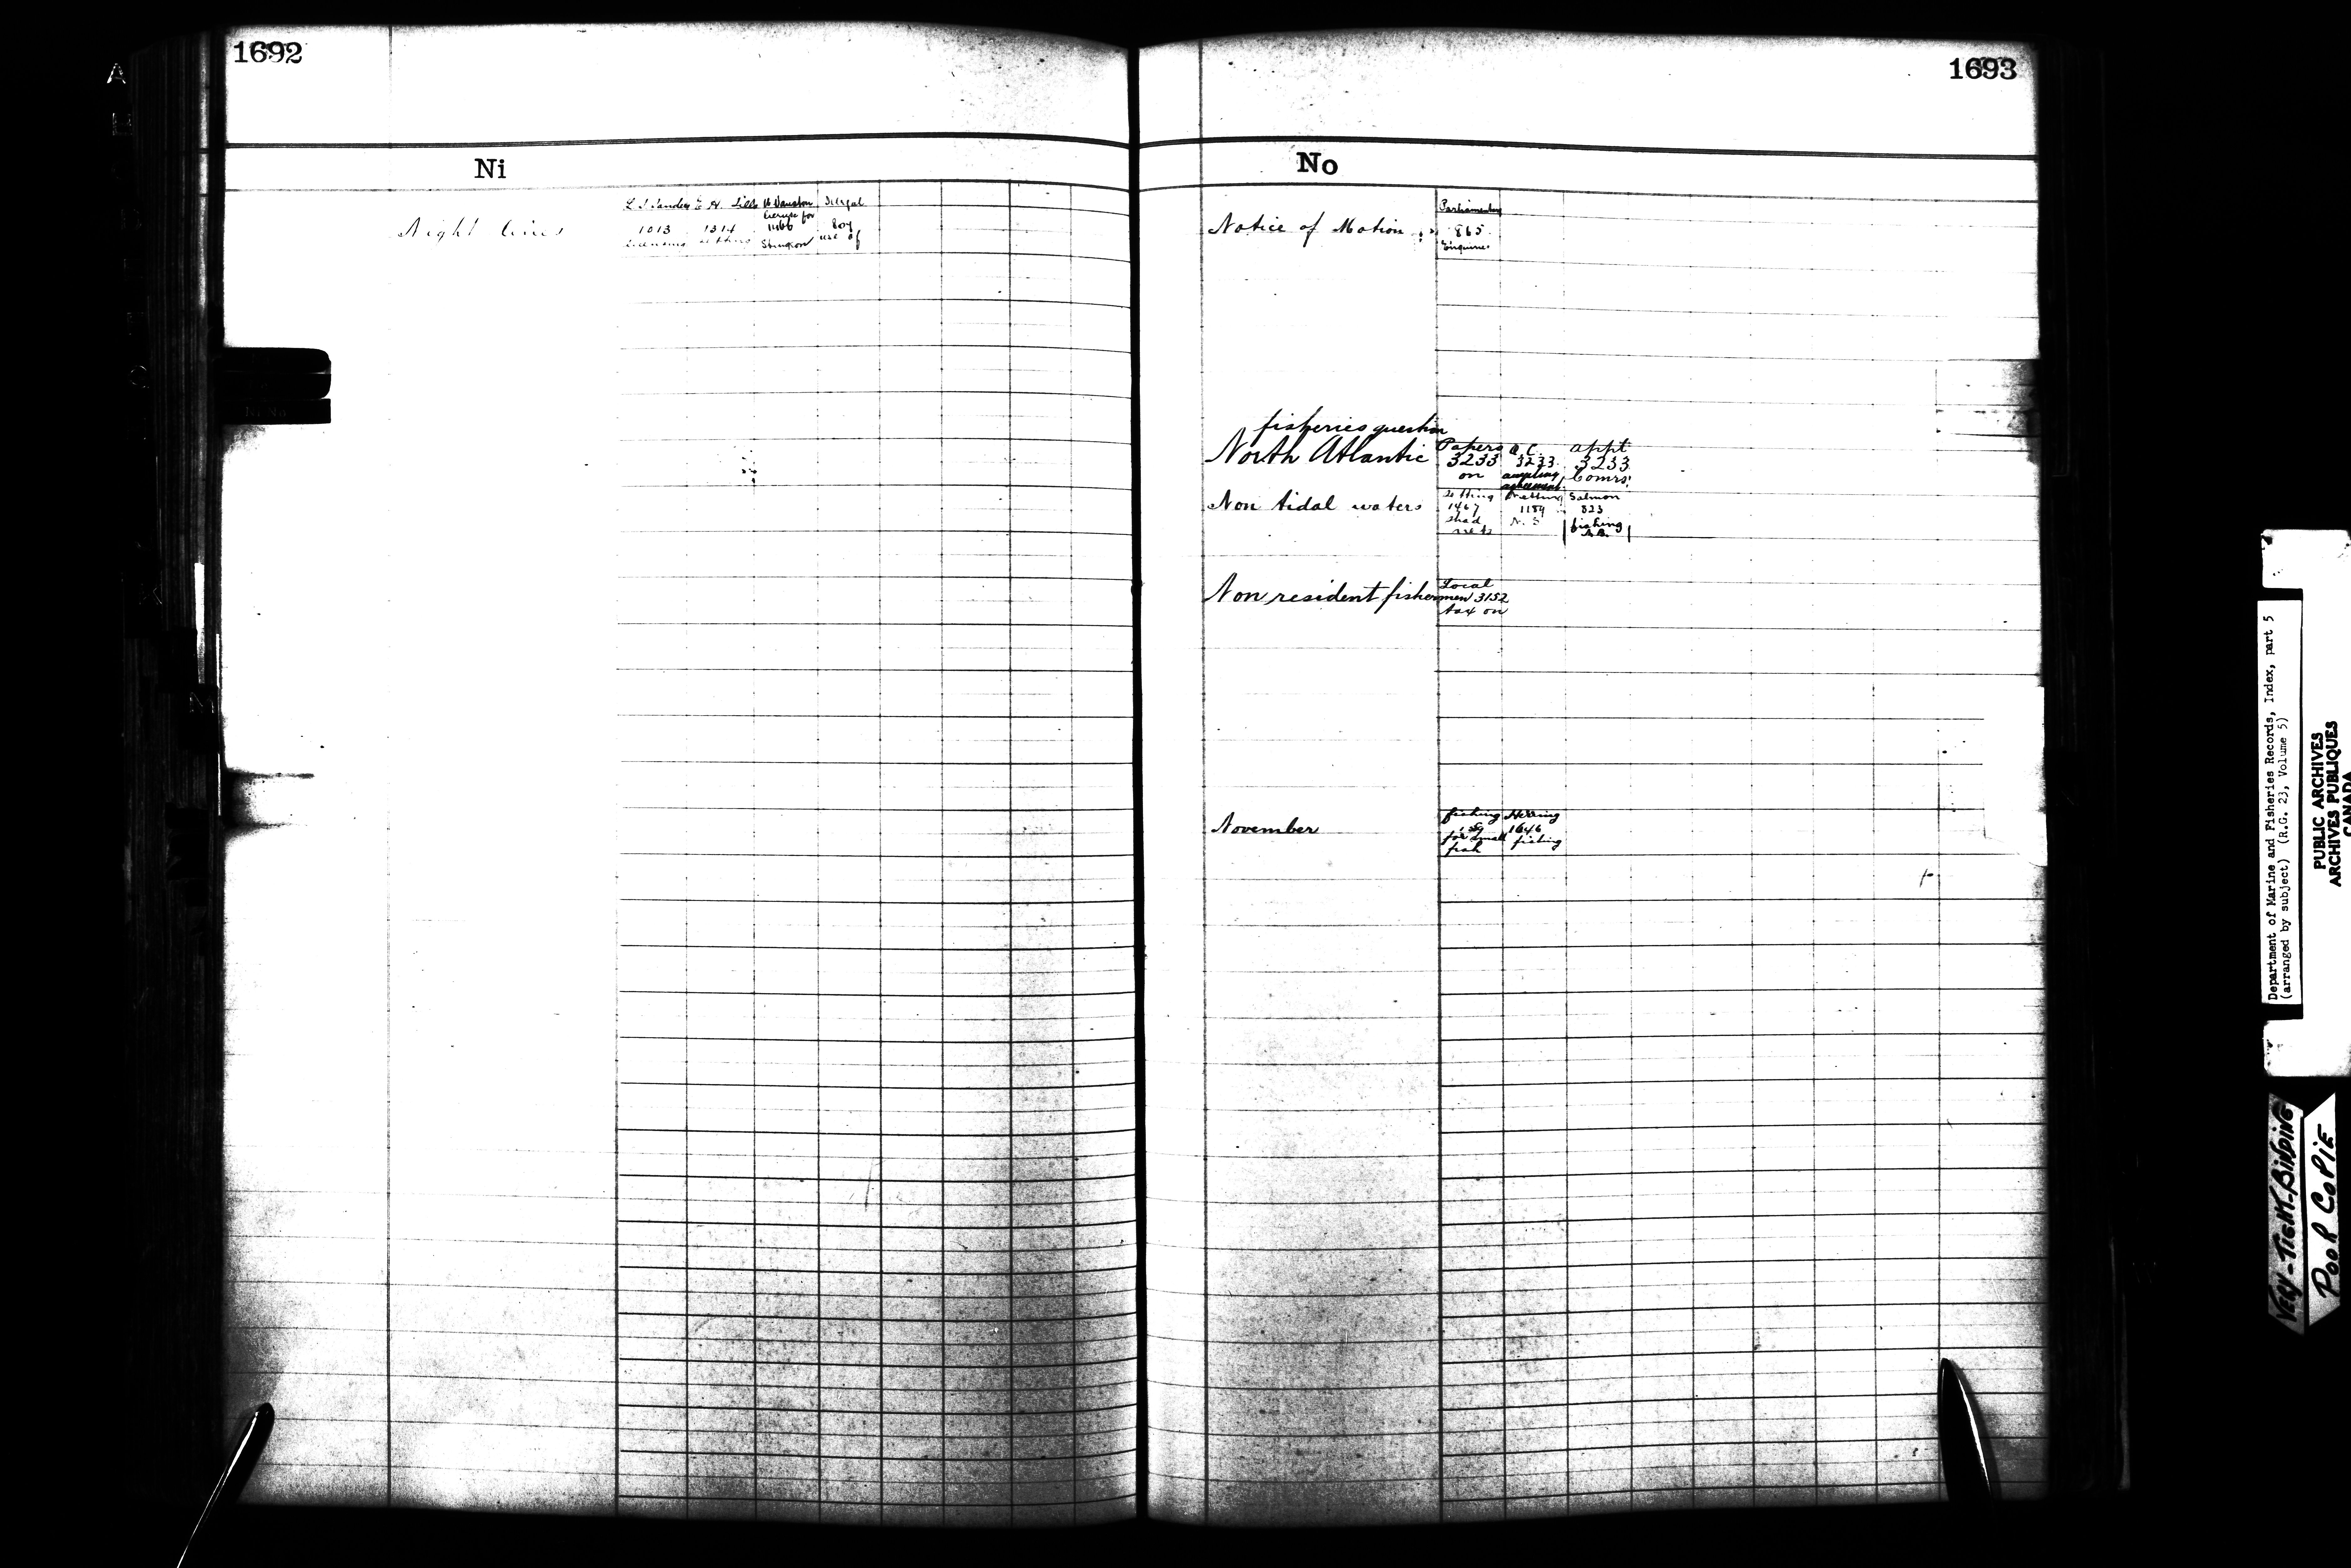 1692
Ni
Night lines
1013 1314 1466 804
licensing setting Sturgeon use of
Illegal
1693
No
Notice of Motion
Parliamentary
865
Enquiries
fisheries question
North Atlantic
Papers O.C. appt
3233 3233 3233
on accepting Comrs.
agreement
Non tidal waters
Setting Netting Salmon
1467 1189 823
shad N.S fishing
nets N.B.
Non resident fishermen 3152
Local
tax on
November
fishing Herring
1646
for small fishing
fish
Department of Marine and Fisheries Records, Index, part 5
(arranged by subject) (R.G. 23, Volume 5)
PUBLIC ARCHIVES
ARCHIVES PUBLIQUES
CANADA
VERY-TIGHT-BINDING
POOR COPIE